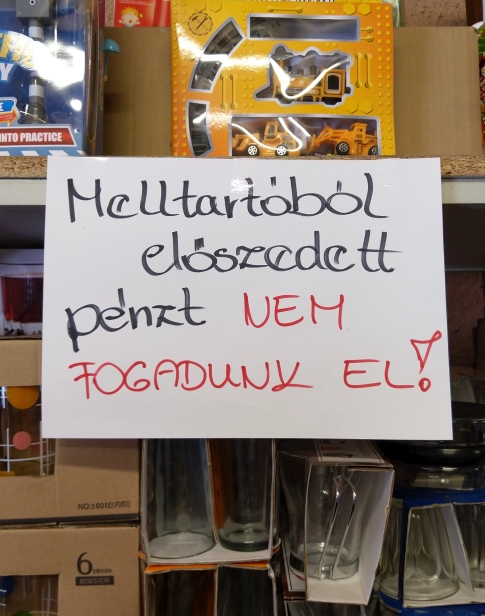 Y
E
INTO PRACTICE
Melltartóból
előszedett
pénzt NEM
FOGADUNK EL!
NO.1001E(内销)
6 pieces